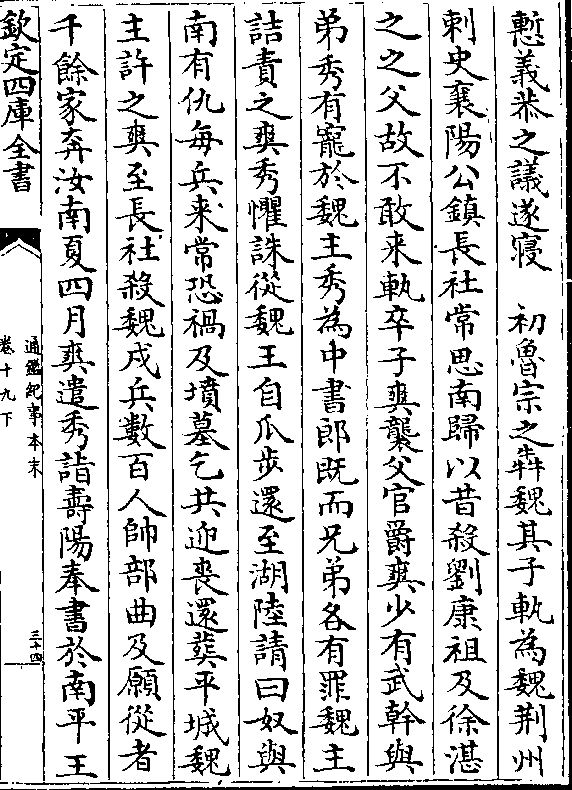 慙義恭之議遂寢　初魯宗之犇魏其子軌為魏荆州
刺史襄陽公鎮長社常思南歸以昔殺劉康祖及徐湛
之之父故不敢来軌卒子爽襲父官爵爽少有武幹與
弟秀有寵於魏主秀為中書郎既而兄弟各有罪魏主
詰責之爽秀懼誅從魏王自瓜步還至湖陸請曰奴與
南有仇每兵来常恐禍及墳墓乞共迎喪還葬平城魏
主許之爽至長社殺魏戍兵數百人帥部曲及願從者
千餘家奔汝南夏四月爽遣秀詣壽陽奉書於南平王
欽定四庫全書
通鑑紀事本末
卷十九下
三十四